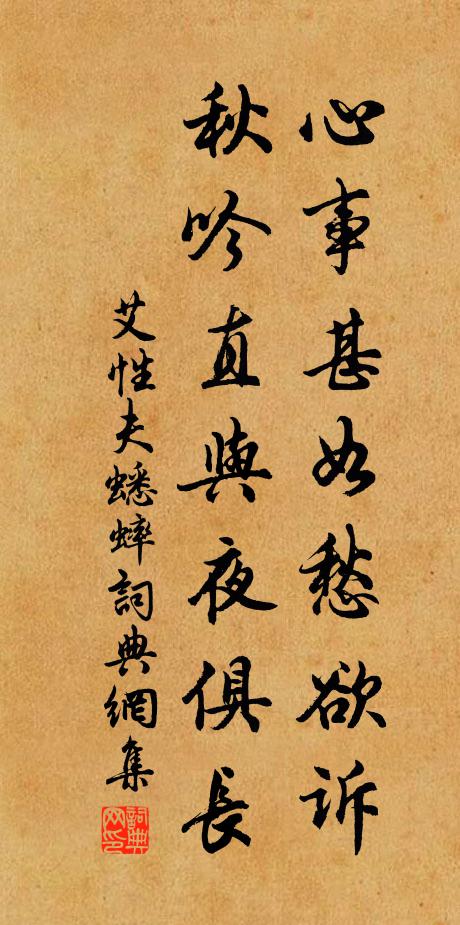 心事甚如愁欲訴
秋吟直與夜俱長
艾性夫蟋蟀詞典網集
詞典网印